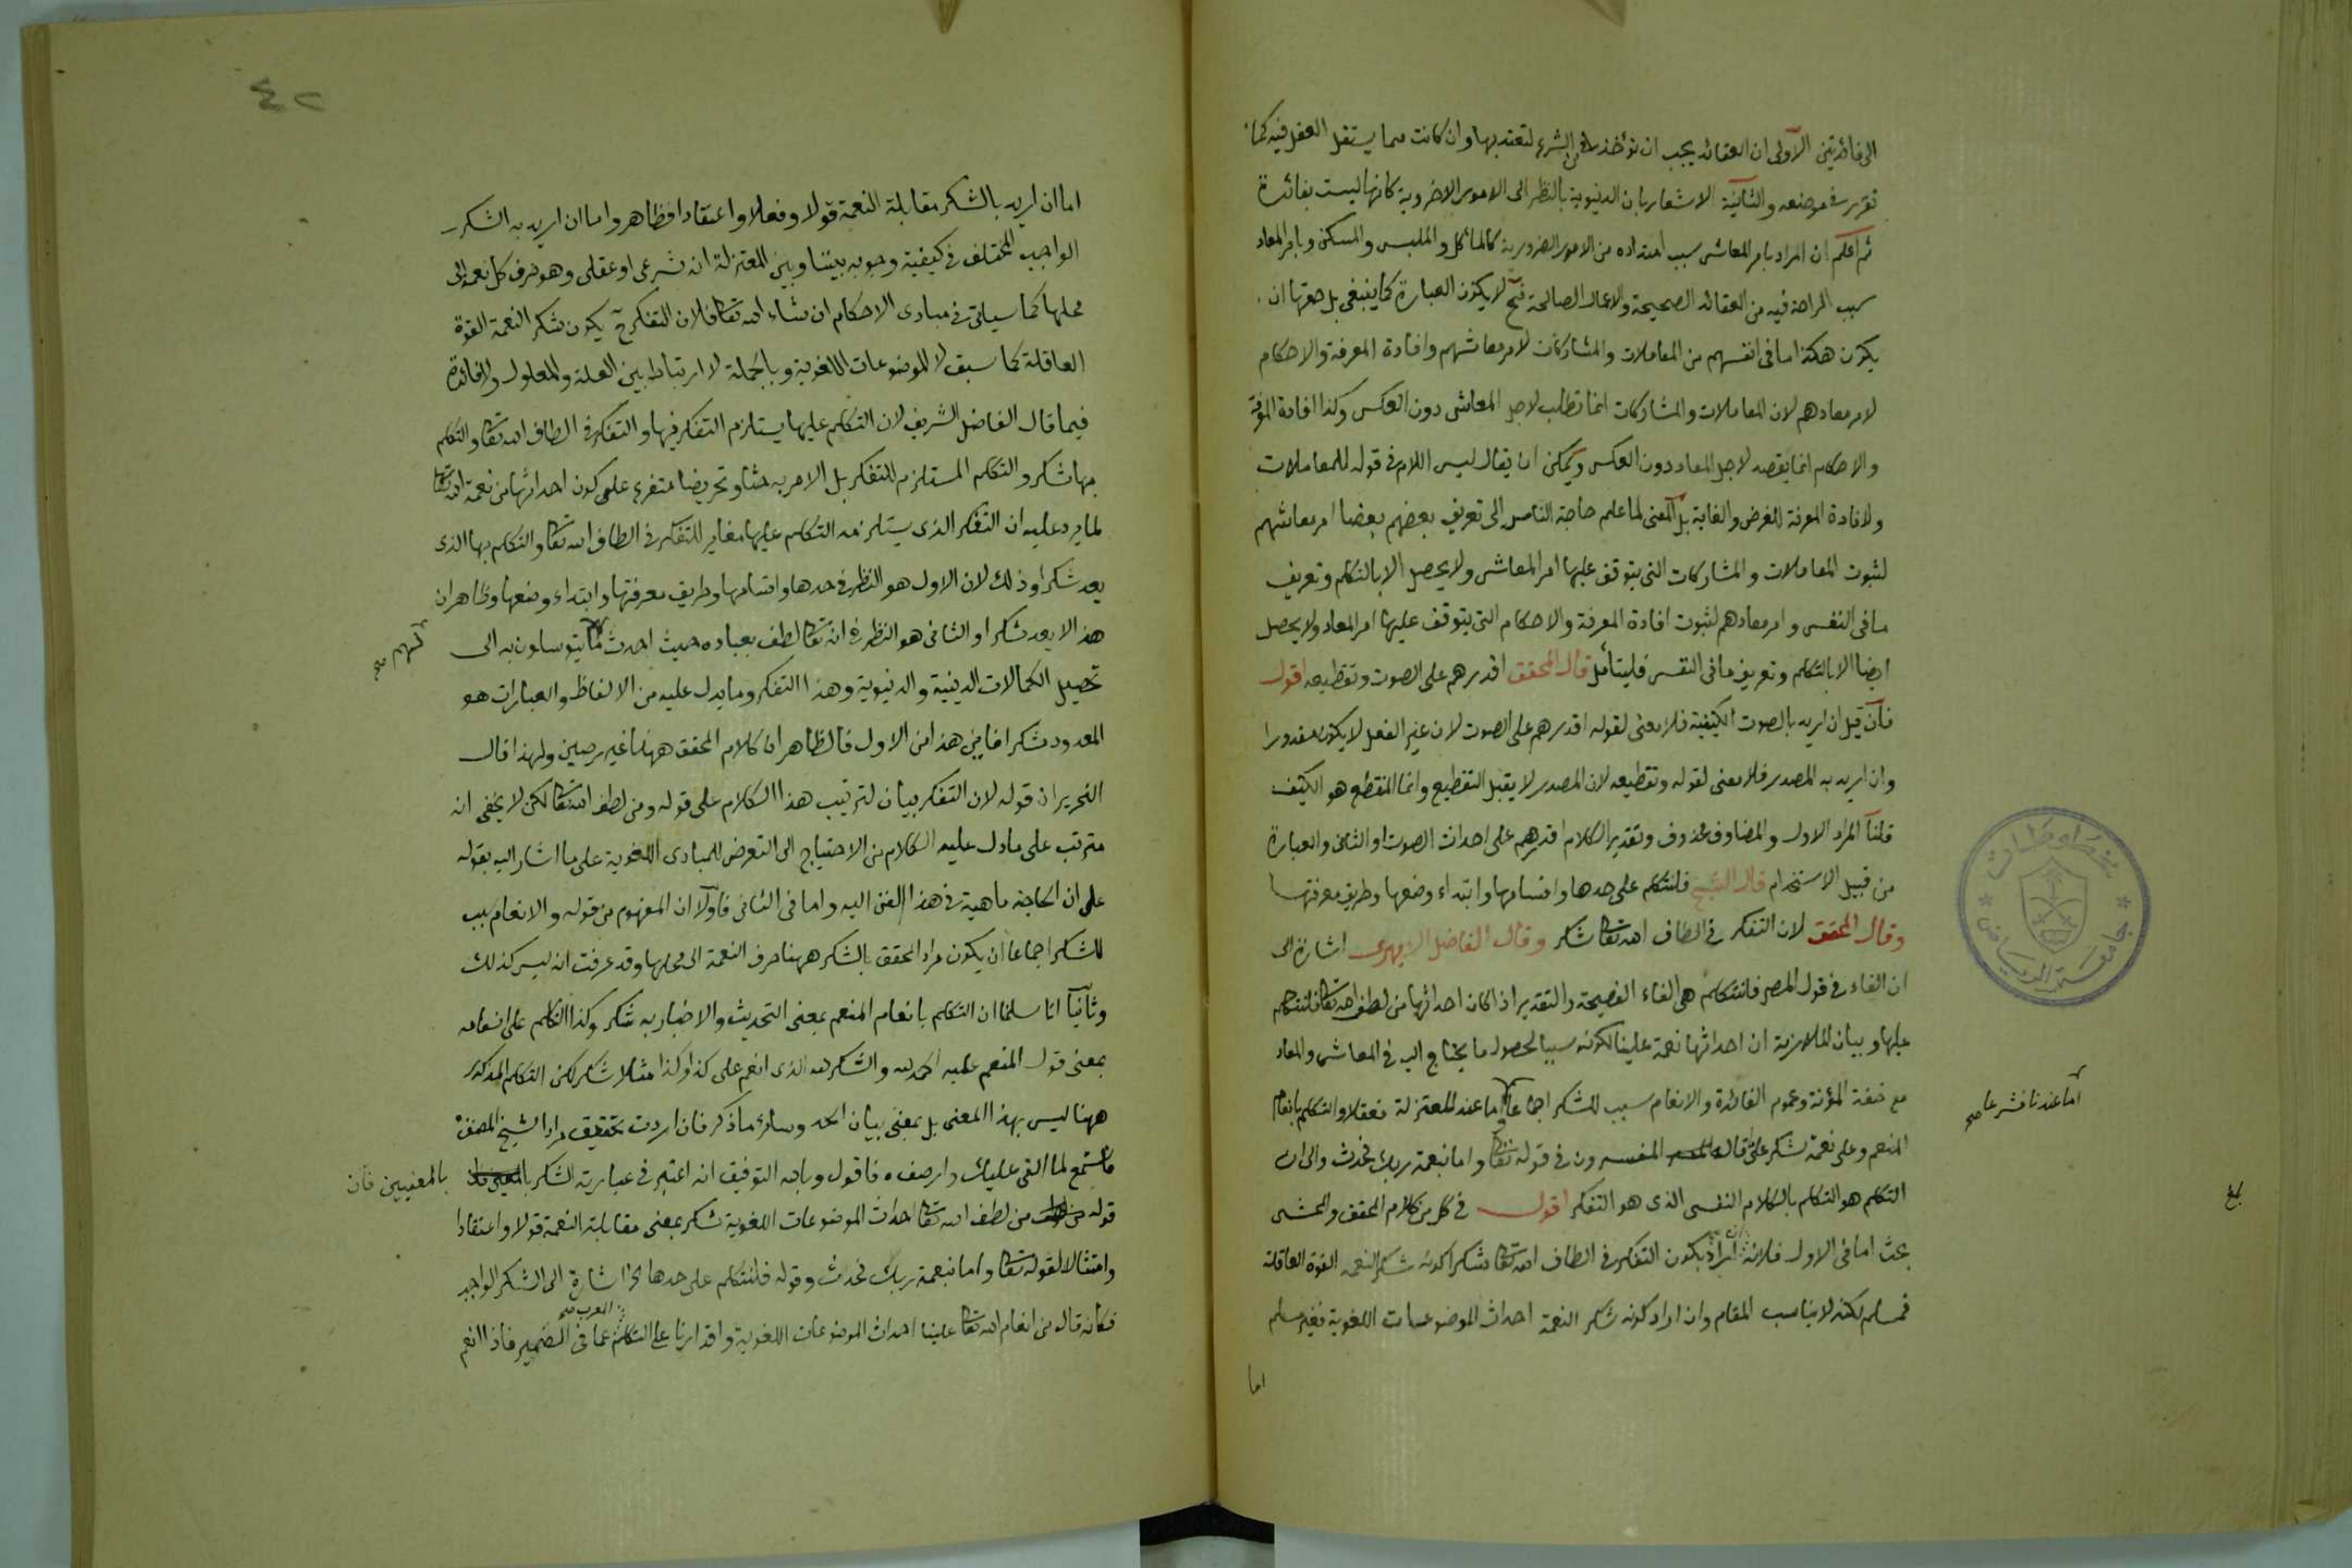 الى فائدتين الاولى ان العقائد يجب ان تؤخذ من الشرع لتعتد بها وان كانت مما يستقل العقل فيه كما
تقرر فى موضعه والثانية الاشعار بان الدنيوية بالنظر الى الامور الاخروية كانها ليست بفائدة
ثم اعلم ان المراد بامر المعاش سبب امتداده من الامور الضرورية كالمأكل والملبس والمسكن وبامر المعاد
سبب الراحة فيه من العقائد الصحيحة والاعمال الصالحة فح لا يكون العبارة كما ينبغى بل حقها ان
يكون هكذا ما فى انفسهم من المعاملات والمشاركات لامر معاشهم وافادة المعرفة والاحكام
لامر معادهم لان المعاملات والمشاركات انما تطلب لاجل المعاش دون العكس وكذا افادة المعرفة
والاحكام انما يقصد لاجل المعاد دون العكس ويمكن ان يقال ليس اللام فى قوله للمعاملات
ولافادة المعرفة للغرض والغاية بل المعنى لما علم حاجة الناس الى تعريف بعضهم بعضا امر معاشهم
لثبوت المعاملات والمشاركات التى يتوقف عليها امر المعاش ولا يحصل الا بالتكلم وتعريف
ما فى النفس وامر معادهم لثبوت افادة المعرفة والاحكام التى يتوقف عليها امر المعاد ولا يحصل
ايضا الا بالتكلم وتعريف ما فى النفس فليتأمل قال المحقق اقدرهم على الصوت وتقطيعه اقول
فان قيل ان اريد بالصوت الكيفية فلا معنى لقوله اقدرهم على الصوت لان غير الفعل لا يكون مقدورا
وان اريد به المصدر فلا معنى لقوله وتقطيعه لان المصدر لا يقبل التقطيع وانما المنقطع هو الكيف
قلنا المراد الاول والمضاف محذوف وتقدير الكلام اقدرهم على احداث الصوت او الثانى والعبارة
من قبيل الاستخدام قال الشيخ فلنتكلم على حدها واقسامها وابتداء وضعها وطريق معرفتها
وقال المحقق لان التفكر فى الطاف الله تعالى شكر وقال الفاضل الابهرى اشارة الى
ان الفاء فى قول المص فلنتكلم هى الفاء الفصيحة والتقدير اذا كان احداثها من لطف الله تعالى فلنتكلم
عليها وبيان الملازمة ان احداثها نعمة علينا لكونه سببا لحصول ما يحتاج اليه فى المعاش والمعاد
مع خفة المؤنة وعموم الفائدة والانعام سبب للشكر اجماعا واما عند المعتزلة فعقلا والتكلم بانعام
اما عندنا فشرعا صح
المنعم وعلى نعمه شكر على ما قاله المفسرون فى قوله تعالى واما بنعمة ربك فحدث والى ان
التكلم هو التكلم بالكلام النفسى الذى هو التفكر اقول فى كل من كلام المحقق والمحشى
بلغ
بحث اما فى الاول فلانه ان اراد بكون التفكر فى الطاف الله تعالى شكرا كونه شكر النعمة القوة العاقلة
فمسلم لكنه لا يناسب المقام وان اراد كونه شكر النعمة احداث الموضوعات اللغوية فغير مسلم
اما
جامعة الرياض
مخطوطات
٤٢
اما ان اريد بالشكر مقابلة النعمة قولا وفعلا واعتقادا فظاهر واما ان اريد به الشكر
الواجب المختلف فى كيفية وجوبه بيننا وبين المعتزلة انه شرعى او عقلى وهو صرف كل نعمة الى
محلها كما سيأتى فى مبادى الاحكام ان شاء الله تعالى فلان التفكر ح يكون شكر النعمة القوة
العاقلة كما سبق لا الموضوعات اللغوية وبالجملة لا ارتباط بين العلة والمعلول ولا فائدة
فيما قال الفاضل الشريف لان التكلم عليها يستلزم التفكر فيها والتفكر فى الطاف الله تعالى والتكلم
بها شكر والتكلم المستلزم للتفكر بل الامر به حثا وتحريضا متفرع على كون احداثها من نعمة الله تعالى
لما يرد عليه ان التفكر الذى يستلزمه التكلم عليها مغاير للتفكر فى الطاف الله تعالى والتكلم بها الذى
يعد شكرا وذلك لان الاول هو النظر فى حدها واقسامها وطريق معرفتها وابتداء وضعها وظاهر ان
هذا لا يعد شكرا والثانى هو النظر فى انه تعالى لطف بعباده حيث احدث ما يتوسلون به الى
لهم صح
تحصيل الكمالات الدينية والدنيوية وهذا التفكر وما يدل عليه من الالفاظ والعبارات هو
المعدود شكرا فاين هذا من الاول فالظاهر ان كلام المحقق ههنا غير رصين ولهذا قال
النحرير ان قوله لان التفكر بيان لترتيب هذا الكلام على قوله ومن لطف الله تعالى لكن لا يخفى انه
مترتب على ما دل عليه الكلام من الاحتياج الى التعرض للمبادى اللغوية على ما اشار اليه بقوله
على ان الحاجة ماهية فى هذا الفن اليه واما فى الثانى فاولا ان المفهوم من قوله والانعام سبب
للشكر اجماعا ان يكون مراد المحقق بالشكر ههنا صرف النعمة الى محلها وقد عرفت انه ليس كذلك
وثانيا انا سلمنا ان التكلم بانعام المنعم بمعنى التحديث والاخبار به شكر وكذا التكلم على انعامه
بمعنى قول المنعم عليه الحمد لله والشكر لله الذى انعم على كذا وكذا مثلا شكر لكن التكلم المذكور
ههنا ليس بهذا المعنى بل بمعنى بيان الحد وسائر ما ذكر فان اردت تحقيق مراد الشيخ المصنف
فاستمع لما القى عليك وارصفه فاقول وبالله التوفيق انه اعتبر فى عبارته الشكر
بالمعنيين فان
قوله من لطف الله تعالى احداث الموضوعات اللغوية شكر بمعنى مقابلة النعمة قولا واعتقادا
وامتثالا لقوله تعالى واما بنعمة ربك فحدث وقوله فلنتكلم على حدها الخ اشارة الى الشكر الواجب
المعرب صح
فكانه قال من انعام الله تعالى علينا احداث الموضوعات اللغوية واقدارنا على التكلم عما فى الضمير فاذا انعم